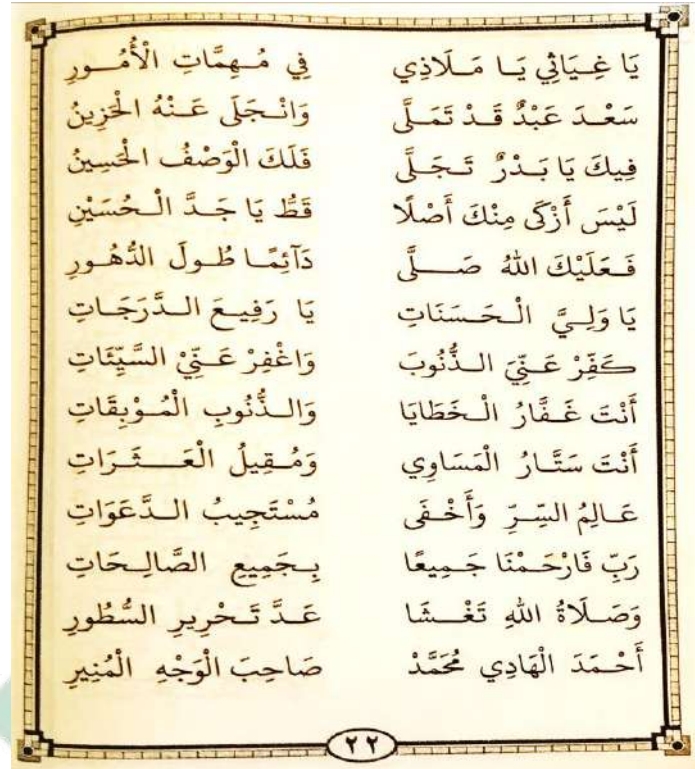 يَا غِيَاثِي يَا مَلَاذِي فِي مُهِمَّاتِ الْأُمُورِ
سَعْدَ عَبْدٌ قَدْ تَمَلَّى وَانْجَلَى عَنْهُ الْحَزِينُ
فِيكَ يَا بَدْرٌ تَجَلَّى فَلَكَ الْوَصْفُ الْحَسِينُ
لَيْسَ أَزْكَى مِنْكَ أَصْلًا قَطُّ يَا جَدَّ الْحُسَيْنِ
فَعَلَيْكَ اللهُ صَلَّى دَآئِمًا طُولَ الدُّهُورِ
يَا وَلِيَّ الْحَسَنَاتِ يَا رَفِيعَ الدَّرَجَاتِ
كَفِّرْ عَنِّيَ الذُّنُوبَ وَاغْفِرْ عَنِّيْ السَّيِّئَاتِ
أَنْتَ غَفَّارُ الْخَطَايَا وَالذُّنُوبِ الْمُوْبِقَاتِ
أَنْتَ سَتَّارُ الْمَسَاوِي وَمُقِيلُ الْعَثَرَاتِ
عَالِمُ السِّرِّ وَأَخْفَى مُسْتَجِيبُ الدَّعَوَاتِ
رَبِّ فَارْحَمْنَا جَمِيعًا بِجَمِيعِ الصَّالِحَاتِ
وَصَلَاةُ اللهِ تَغْشَا عَدَّ تَحْرِيرِ السُّطُورِ
أَحْمَدَ الْهَادِي مُحَمَّدْ صَاحِبَ الْوَجْهِ الْمُنِيرِ
٢٢